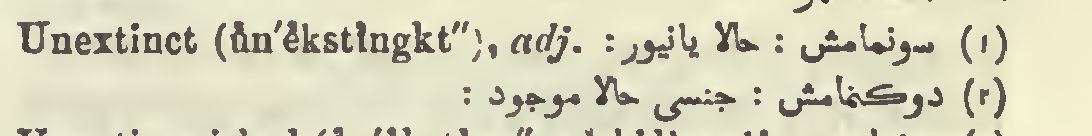 Unextinct (ŭn′ĕkstĭngkt″), adj. (١) سونمامش : حالا یانیور :
(٢) دوکنمامش : جنسی حالا موجود :